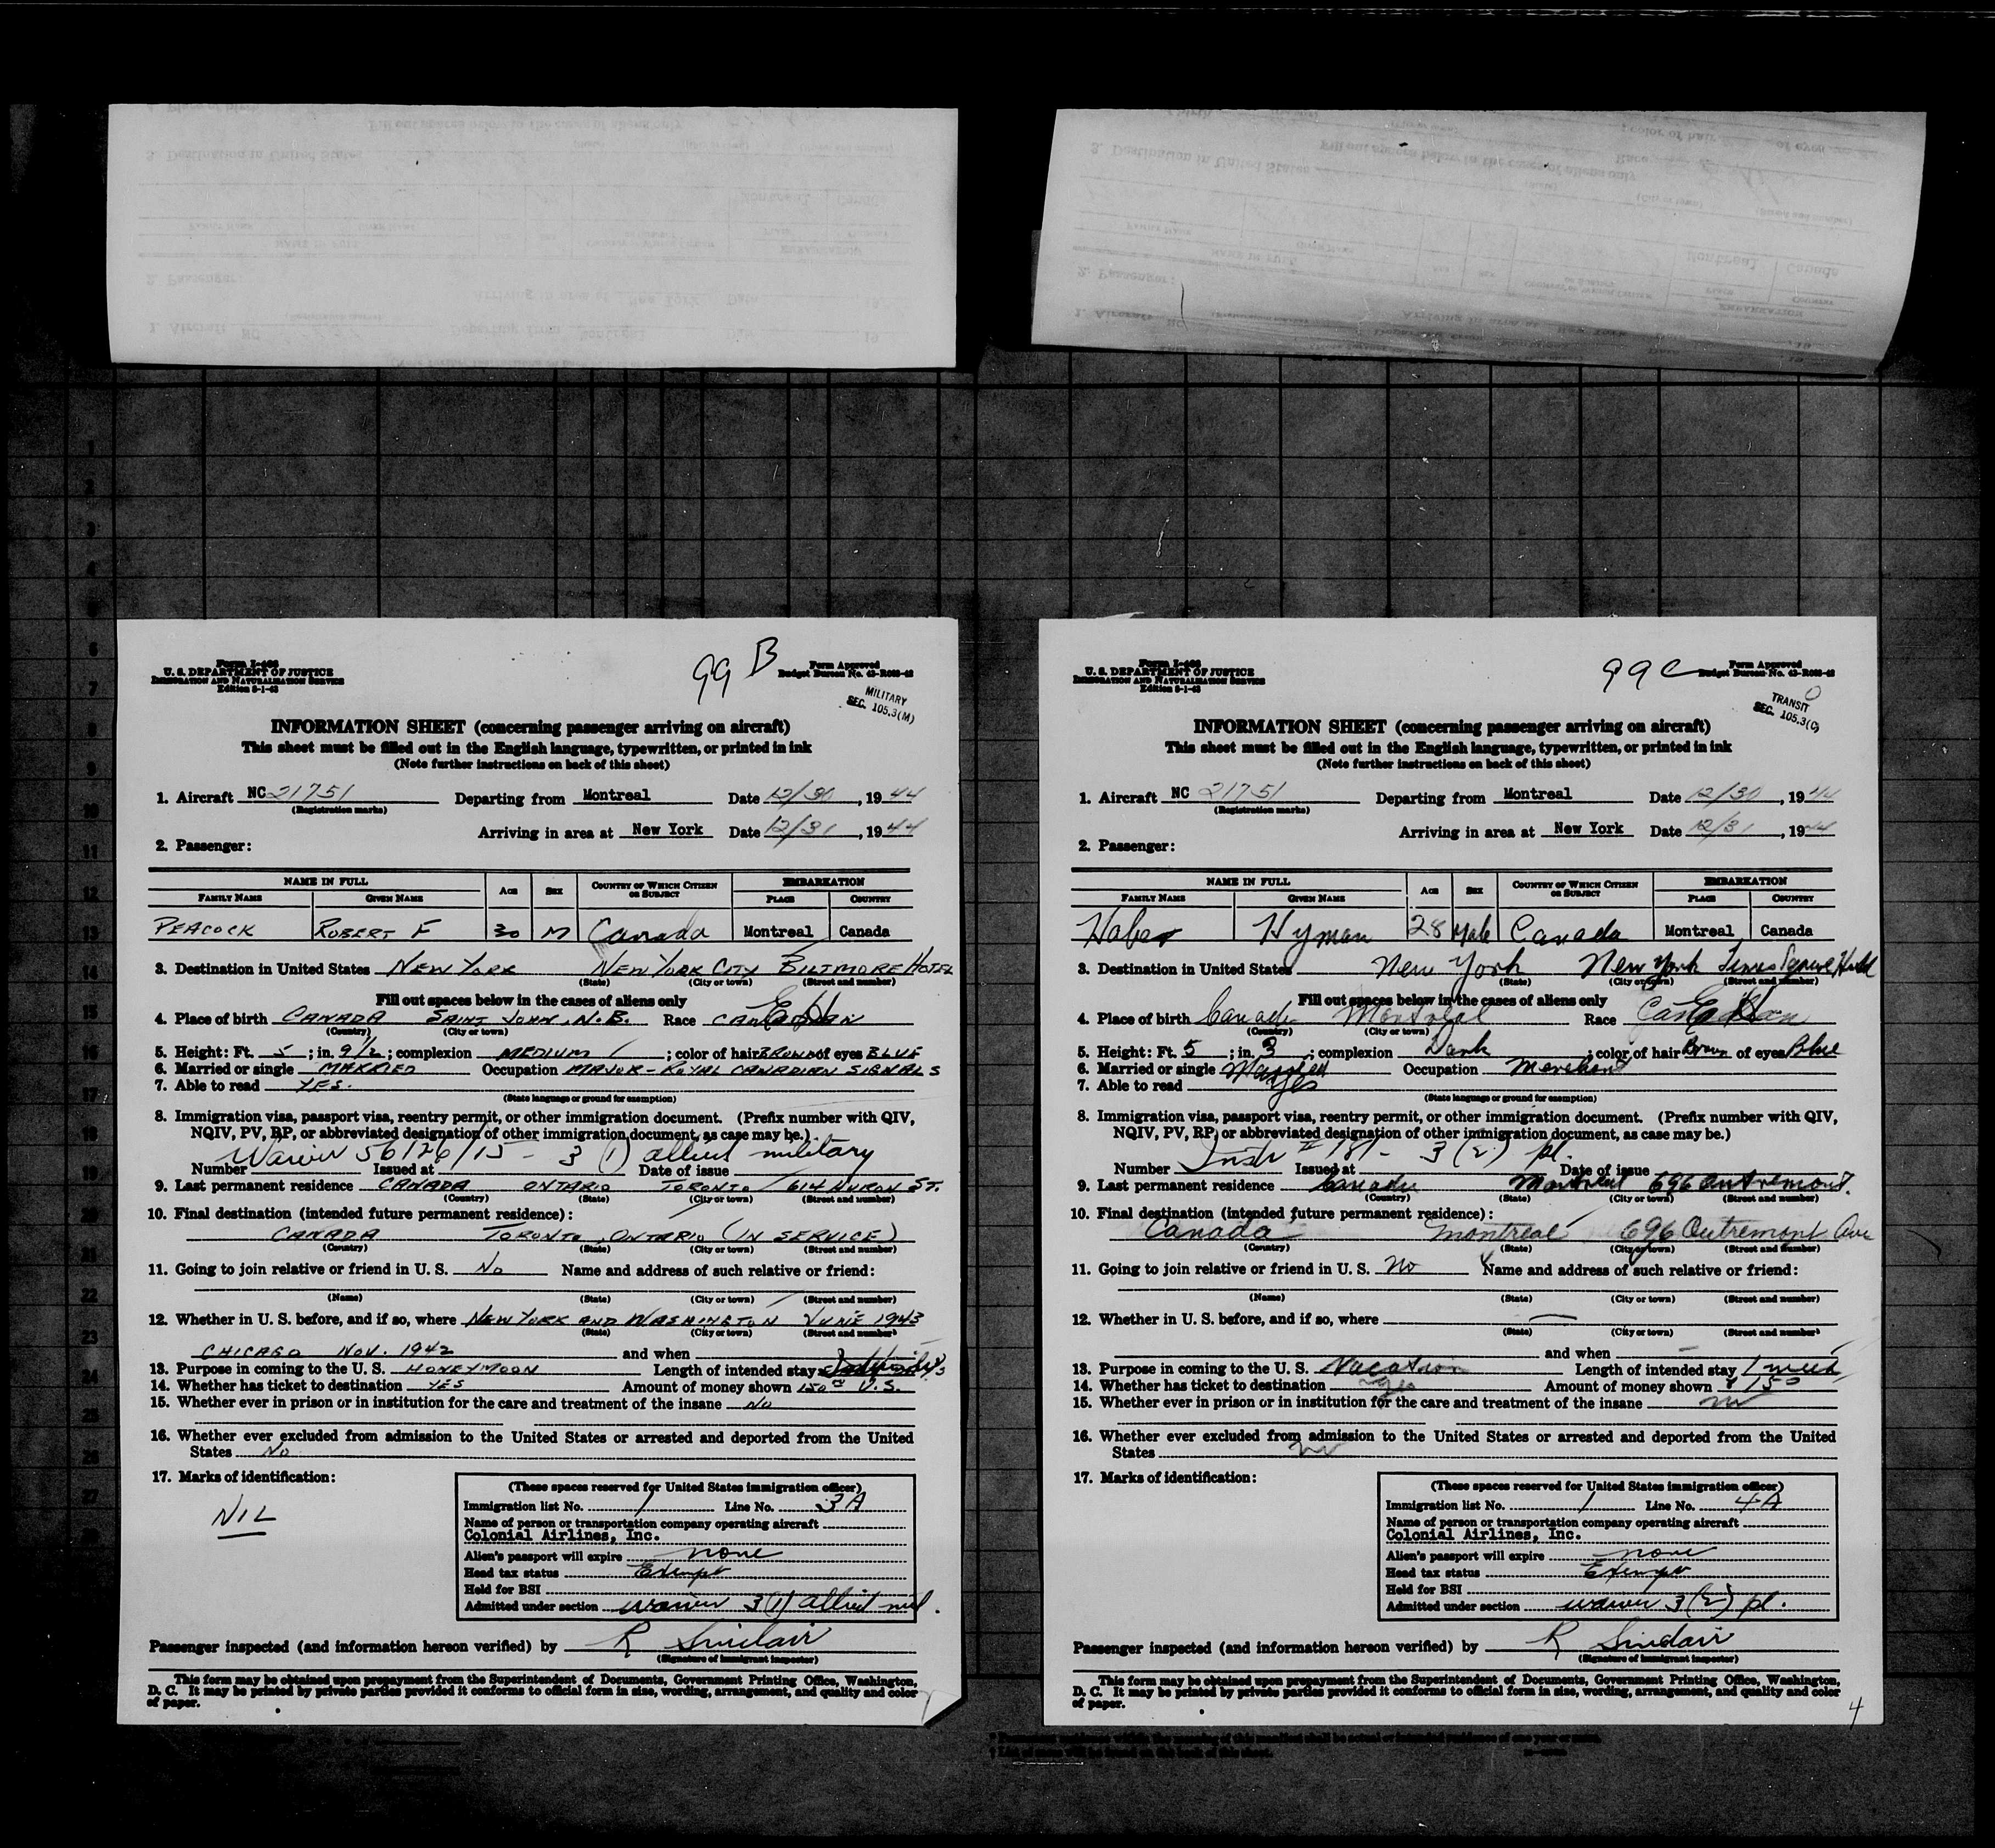 Form I-466
U. S. DEPARTMENT OF JUSTICE
IMMIGRATION AND NATURALIZATION SERVICE
Edition 5-1-43
99 B
Form Approved
Budget Bureau No. 43-R083-42
MILITARY
SEC. 105.3(M)
INFORMATION SHEET (concerning passenger arriving on aircraft)
This sheet must be filled out in the English language, typewritten, or printed in ink
(Note further instructions on back of this sheet)
1. Aircraft NC 21751 Departing from Montreal Date 12/30, 1944
(Registration marks)
Arriving in area at New York Date 12/31, 1944
2. Passenger:
NAME IN FULL AGE SEX COUNTRY OF WHICH CITIZEN OR SUBJECT EMBARKATION
FAMILY NAME GIVEN NAME PLACE COUNTRY
PEACOCK ROBERT F 30 M Canada Montreal Canada
3. Destination in United States NEW YORK NEW YORK CITY BILTMORE HOTEL
(State) (City or town) (Street and number)
Fill out spaces below in the cases of aliens only
4. Place of birth CANADA SAINT JOHN, N.B. Race CANADIAN
(Country) (City or town)
5. Height: Ft. 5; in. 9 1/2; complexion MEDIUM; color of hair BROWN of eyes BLUE
6. Married or single MARRIED Occupation MAJOR - ROYAL CANADIAN SIGNALS
7. Able to read YES.
(State language or ground for exemption)
8. Immigration visa, passport visa, reentry permit, or other immigration document. (Prefix number with QIV,
NQIV, PV, RP, or abbreviated designation of other immigration document, as case may be.)
Waiver 56126/15 - 3 (1) allied military
Number Issued at Date of issue
9. Last permanent residence CANADA ONTARIO TORONTO 614 HURON ST.
(Country) (State) (City or town) (Street and number)
10. Final destination (intended future permanent residence):
CANADA TORONTO, ONTARIO (IN SERVICE)
(Country) (State) (City or town) (Street and number)
11. Going to join relative or friend in U. S. No Name and address of such relative or friend:
(Name) (State) (City or town) (Street and number)
12. Whether in U. S. before, and if so, where NEW YORK AND WASHINGTON JUNE 1943
(State) (City or town) (Street and number)
CHICAGO NOV. 1942 and when
13. Purpose in coming to the U. S. HONEYMOON Length of intended stay
14. Whether has ticket to destination YES Amount of money shown 150 U.S.
15. Whether ever in prison or in institution for the care and treatment of the insane No
16. Whether ever excluded from admission to the United States or arrested and deported from the United
States No
17. Marks of identification:
NIL
(These spaces reserved for United States immigration officer)
Immigration list No. 1 Line No. 3A
Name of person or transportation company operating aircraft
Colonial Airlines, Inc.
Alien's passport will expire none
Head tax status Exempt
Held for BSI
Admitted under section waiver 3(1) allied mil.
Passenger inspected (and information hereon verified) by R Sinclair
(Signature of immigrant inspector)
This form may be obtained upon prepayment from the Superintendent of Documents, Government Printing Office, Washington,
D. C. It may be printed by private parties provided it conforms to official form in size, wording, arrangement, and quality and color
of paper.
Form I-466
U. S. DEPARTMENT OF JUSTICE
IMMIGRATION AND NATURALIZATION SERVICE
Edition 5-1-43
99 C
Form Approved
Budget Bureau No. 43-R083-42
TRANSIT
SEC. 105.3(C)
INFORMATION SHEET (concerning passenger arriving on aircraft)
This sheet must be filled out in the English language, typewritten, or printed in ink
(Note further instructions on back of this sheet)
1. Aircraft NC 21751 Departing from Montreal Date 12/30, 1944
(Registration marks)
Arriving in area at New York Date 12/31, 1944
2. Passenger:
NAME IN FULL AGE SEX COUNTRY OF WHICH CITIZEN OR SUBJECT EMBARKATION
FAMILY NAME GIVEN NAME PLACE COUNTRY
Haber Hyman 28 Male Canada Montreal Canada
3. Destination in United States New York New York Times Square Hotel
(State) (City or town) (Street and number)
Fill out spaces below in the cases of aliens only
4. Place of birth Canada Montreal Race
(Country) (City or town)
5. Height: Ft. 5; in. 3; complexion Dark; color of hair Brown of eyes Blue
6. Married or single Married Occupation Merchant
7. Able to read Yes
(State language or ground for exemption)
8. Immigration visa, passport visa, reentry permit, or other immigration document. (Prefix number with QIV,
NQIV, PV, RP, or abbreviated designation of other immigration document, as case may be.)
3 (2) pl.
Number Issued at Date of issue
9. Last permanent residence Canada Montreal 696 Outremont.
(Country) (State) (City or town) (Street and number)
10. Final destination (intended future permanent residence):
Canada Montreal 696 Outremont Ave
(Country) (State) (City or town) (Street and number)
11. Going to join relative or friend in U. S. No Name and address of such relative or friend:
(Name) (State) (City or town) (Street and number)
12. Whether in U. S. before, and if so, where
(State) (City or town) (Street and number)
and when
13. Purpose in coming to the U. S. Vacation Length of intended stay 1 week
14. Whether has ticket to destination yes Amount of money shown $150
15. Whether ever in prison or in institution for the care and treatment of the insane no
16. Whether ever excluded from admission to the United States or arrested and deported from the United
States no
17. Marks of identification:
(These spaces reserved for United States immigration officer)
Immigration list No. 1 Line No. 4A
Name of person or transportation company operating aircraft
Colonial Airlines, Inc.
Alien's passport will expire none
Head tax status Exempt
Held for BSI
Admitted under section waiver 3 (2) pl.
Passenger inspected (and information hereon verified) by R Sinclair
(Signature of immigrant inspector)
This form may be obtained upon prepayment from the Superintendent of Documents, Government Printing Office, Washington,
D. C. It may be printed by private parties provided it conforms to official form in size, wording, arrangement, and quality and color
of paper.
4